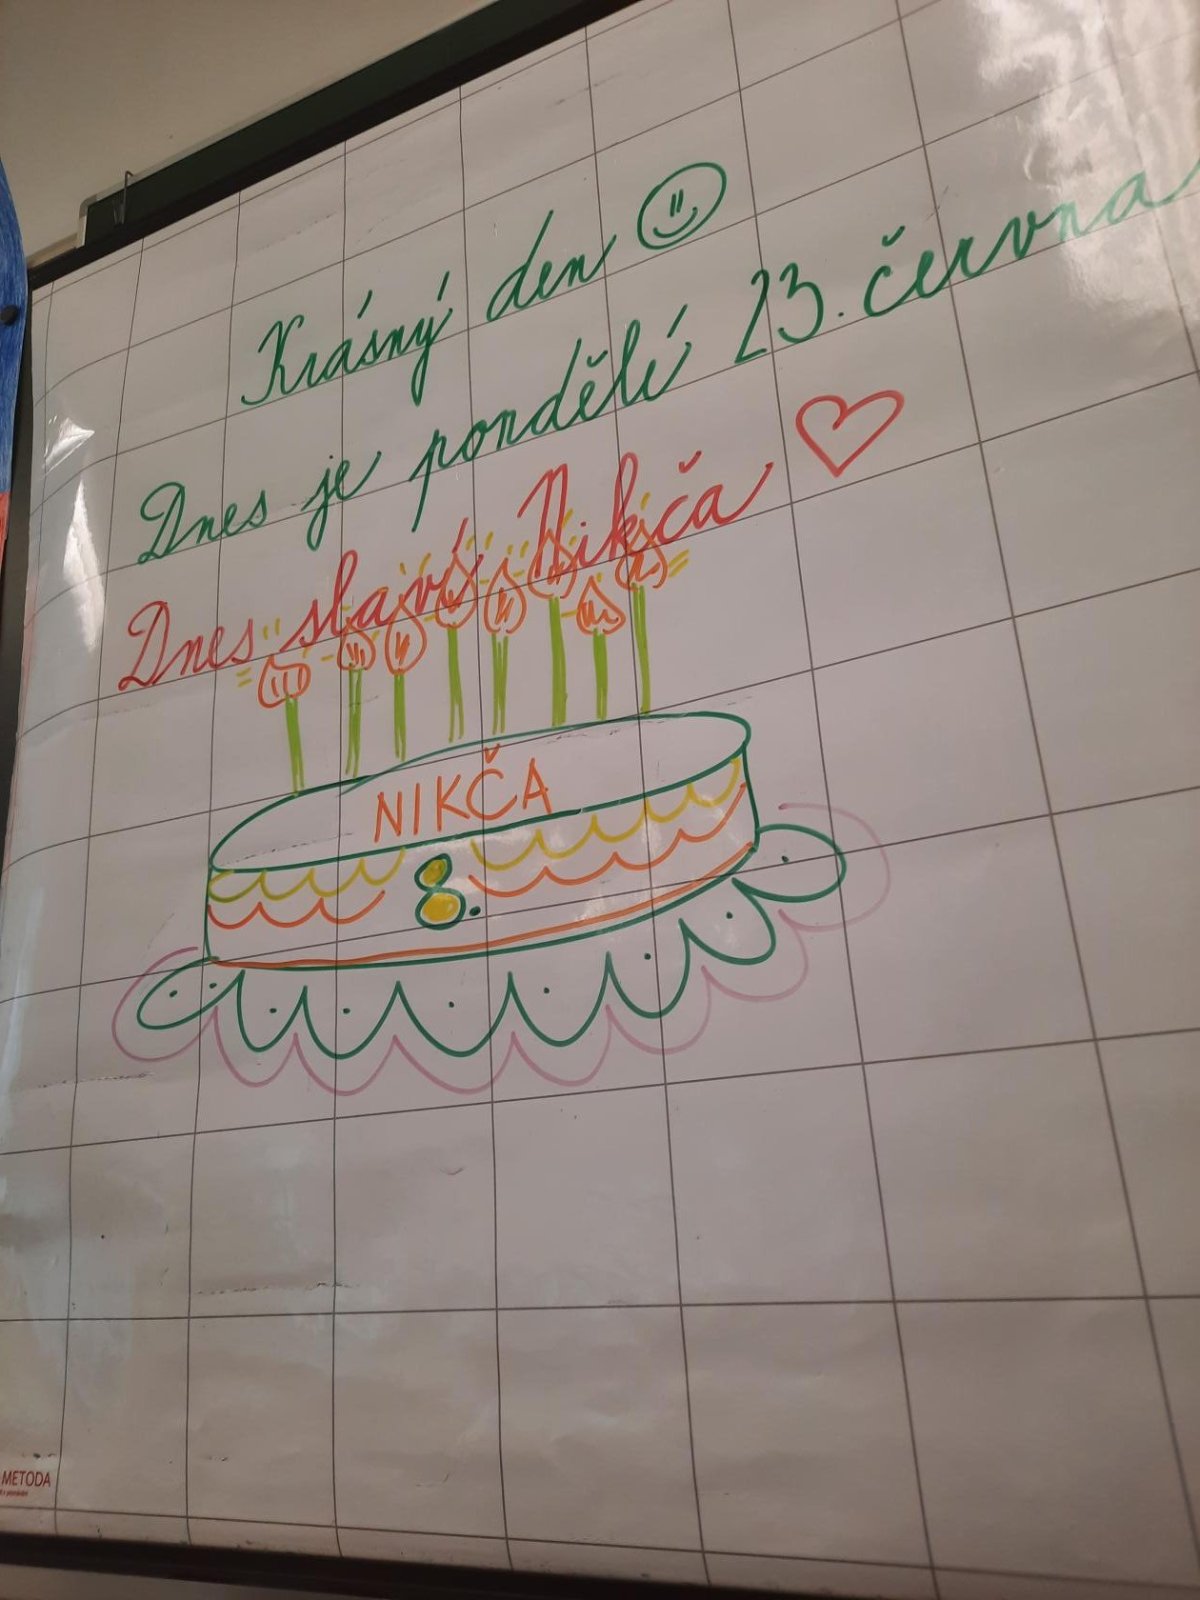 Krásný den
Dnes je pondělí 23. června
Dnes slaví Nikča
NIKČA
8.
METODA